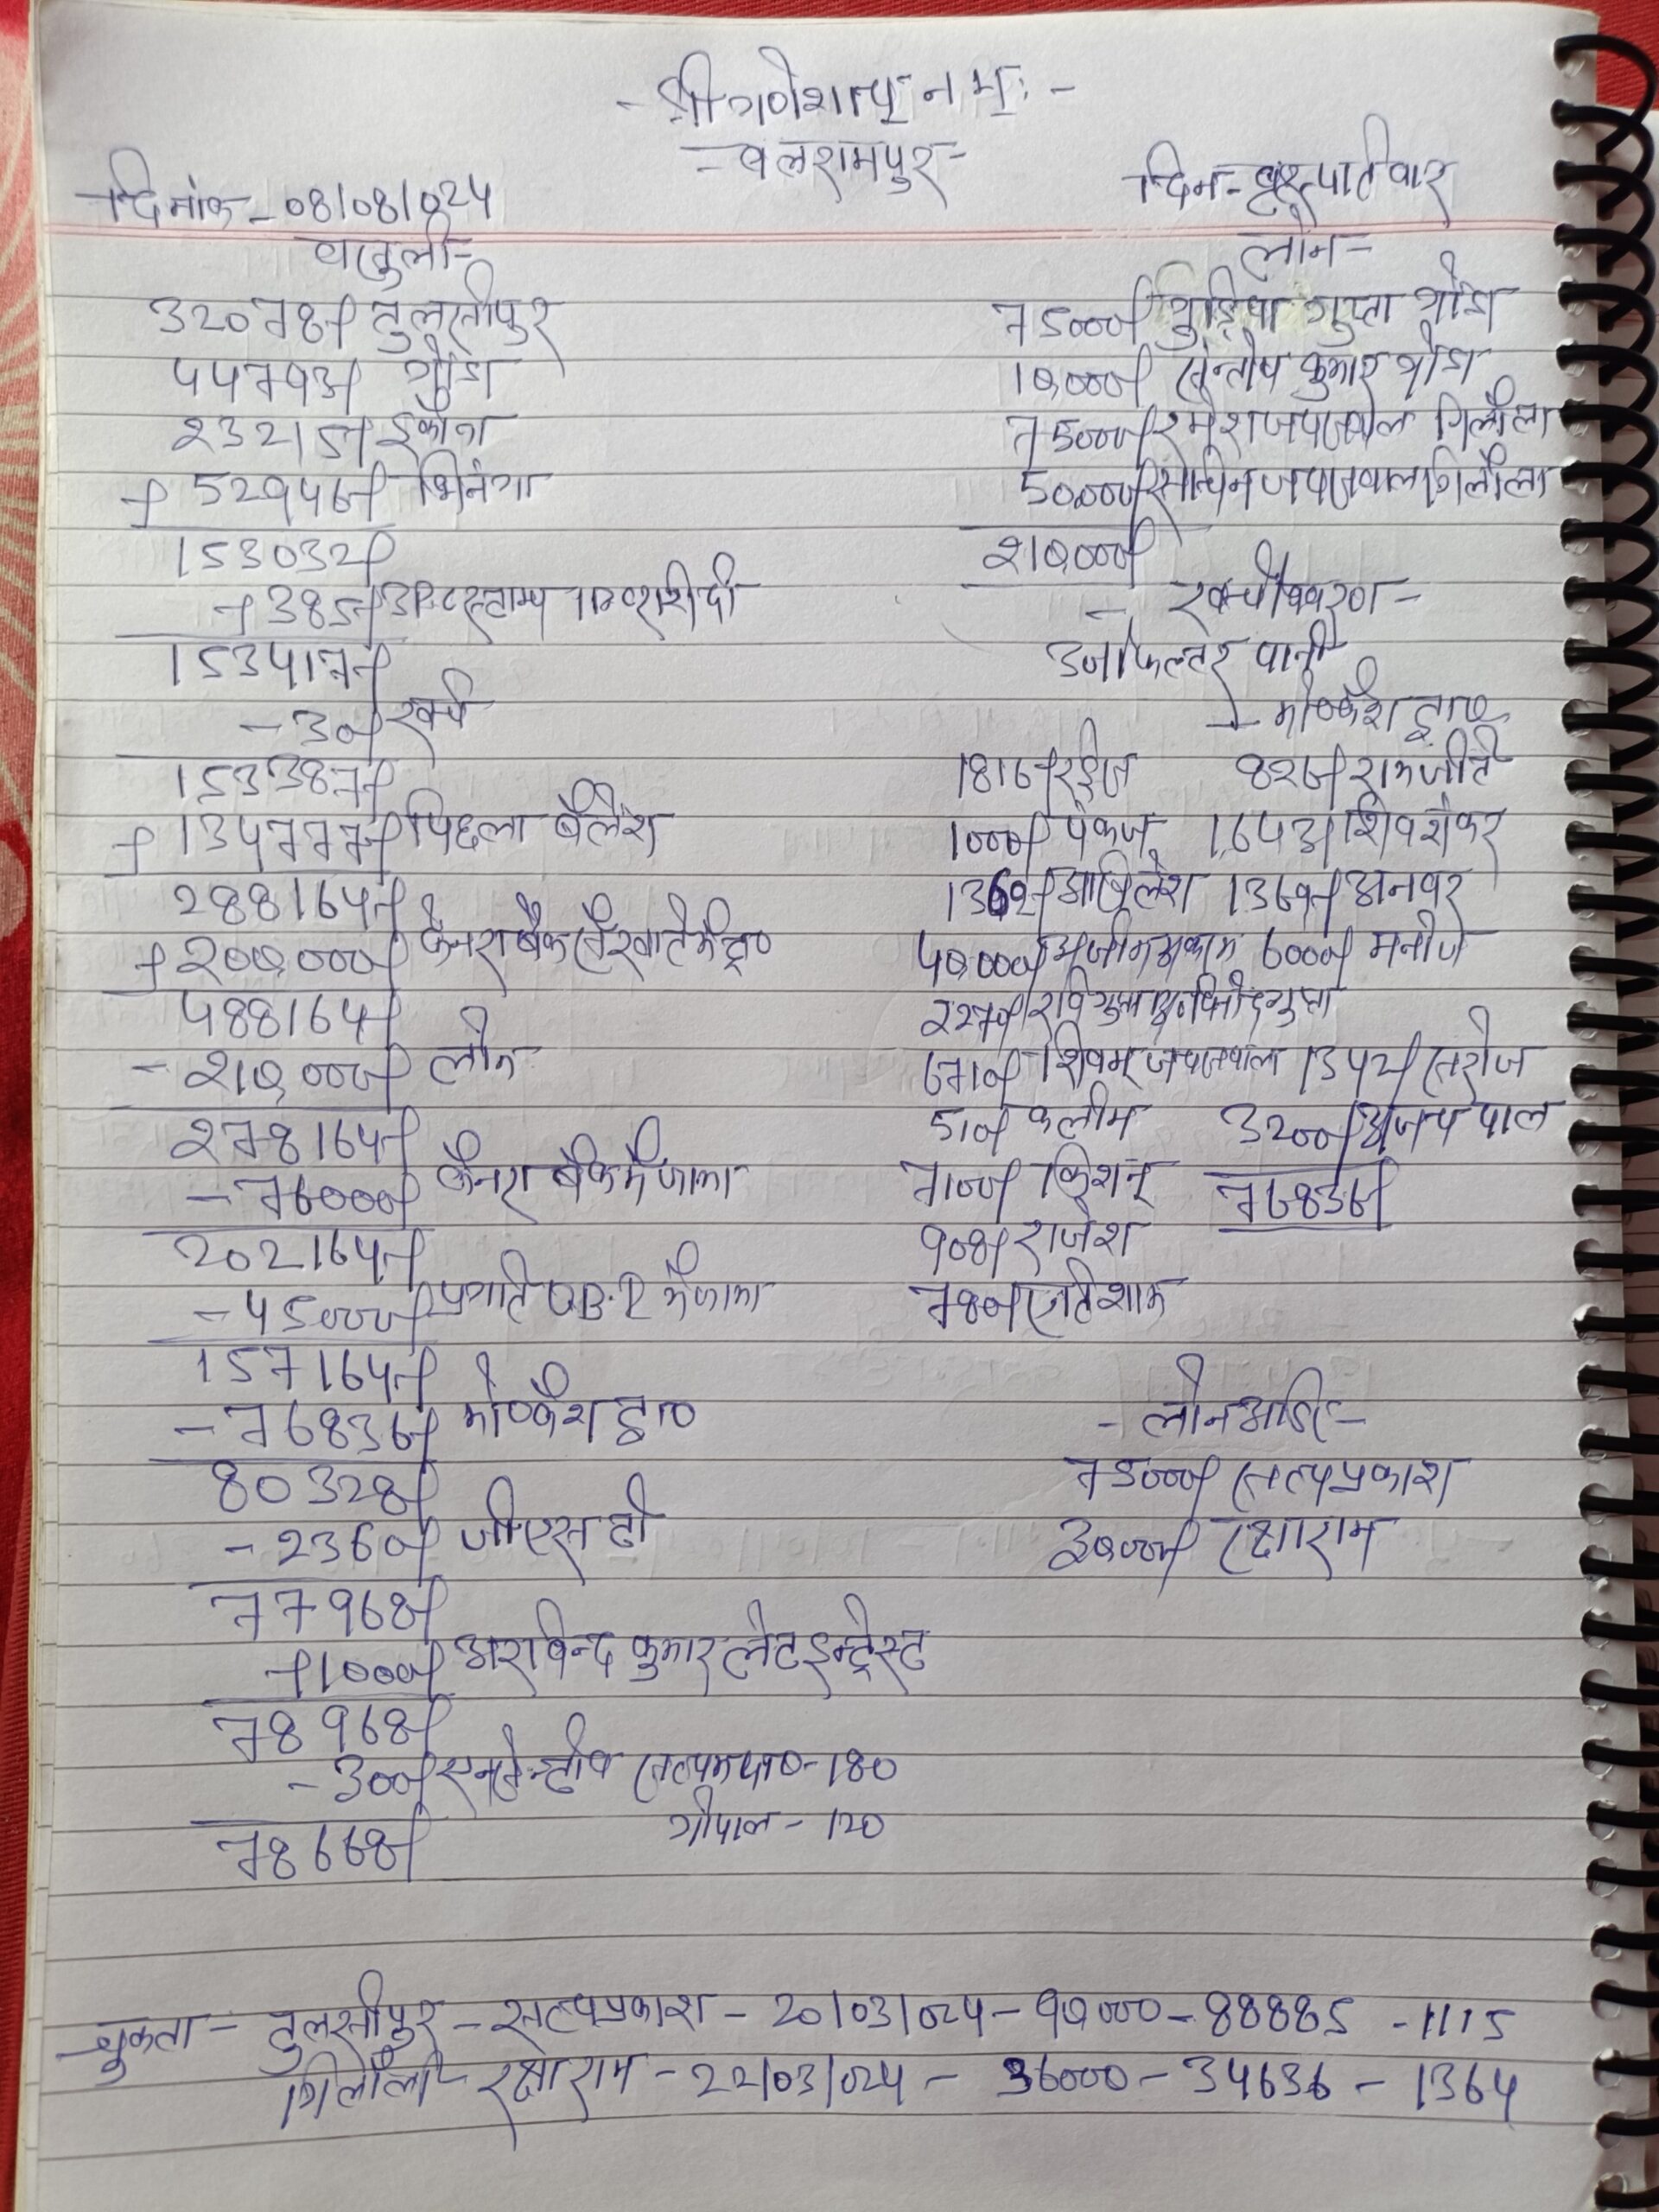 - श्री गणेशाय नमः -
- बलरामपुर -
दिनांक - 08/08/024
दिन - बृहस्पतिवार
वसुली -
32078/- तुलसीपुर
44793/- गोंडा
23215/- इकौना
+ 52946/- भिनगा
153032/-
+ 385/- स्टाम्प
153417/-
- 30/- खर्च
153387/-
+ 134777/- पिछला बैलेंश
288164/-
+ 200,000/- केनरा बैंक से खाते में ट्रा०
488164/-
- 210,000/- लोन
278164/-
- 76000/- केनरा बैंक में जमा
202164/-
- 45000/- प्रगति में जमा
157164/-
- 76836/- मो० कैश द्वारा
80328/-
- 2360/- जीएसटी
77968/-
+ 1000/- अरविन्द कुमार लेट इन्ट्रेस्ट
78968/-
- 300/- - 180
गोपाल - 120
78668/-
लोन -
75000/- गुड़िया गुप्ता गोंडा
10,000/- सन्तोष कुमार गोंडा
75000/- रमेश जयसवाल गिलौला
50,000/- सचिन जयसवाल गिलौला
210,000/-
- खर्च विवरण -
पानी
- मो० कैश द्वारा
1816/- रईस 826/- रामजीत
1000/- पंकज 1,643/- शिवशंकर
1369/- अखिलेश 1369/- अनवर
40,000/- 6000/- मनोज
2270/- रवि गुप्ता विनोद गुप्ता
6710/- शिवम् जयसवाल 1342/- सरोज
510/- कलीम 3200/- अजय पाल
7100/- किशन 76836/-
908/- राजेश
780/- एहतिशाम
- लोन अदि -
75000/- सत्यप्रकाश
30,000/- रक्षाराम
चुकता - तुलसीपुर - सत्यप्रकाश - 20/03/024 - 90,000 - 88885 - 1115
गिलौला - रक्षाराम - 22/03/024 - 36000 - 34636 - 1364